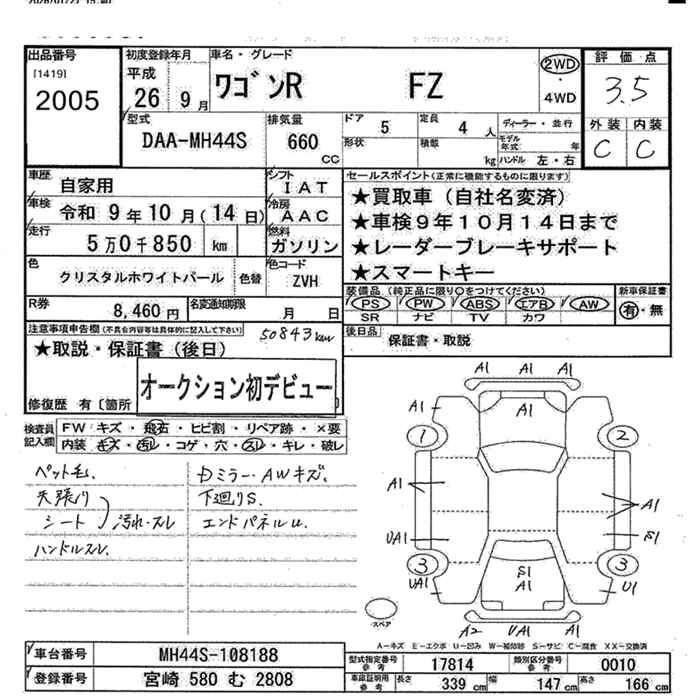 出品番号
[1419]
2005
初度登録年月
平成
26 9 月
車名・グレード
ワゴンR FZ
2WD
・
4WD
評価点
3.5
外装 内装
C C
型式
DAA-MH44S
排気量
660
CC
ドア 5
定員 4 人
形状
積載 kg
ディーラー・並行
モデル年式 年
ハンドル 左・右
車歴 自家用
シフト IAT
車検 令和 9年 10 月( 14 日)
冷房 AAC
走行 5万0千850 km
燃料 ガソリン
色 クリスタルホワイトパール 色替
色コード ZVH
R券 8,460 円
名変通知期限 月 日
セールスポイント(正常に機能するものに限ります)
★買取車(自社名変済)
★車検9年10月14日まで
★レーダーブレーキサポート
★スマートキー
装備品(純正品に限り○をつけてください)
新車保証書
PS PW ABS エアB AW
SR ナビ TV カワ
有・無
後日品
保証書・取説
注意事項申告欄(不具合内容等は具体的に記入して下さい)
50843km
★取説・保証書(後日)
オークション初デビュー
修復歴 有〔箇所
検査員
記入欄
FW キズ・飛石・ヒビ割・リペア跡・×要
内装 キズ・汚れ・コゲ・穴・スレ・キレ・破レ
ペット毛.
天張り
シート 汚れ・スレ
ハンドルスレ.
Dミラー・AWキズ.
下廻りS.
エンドパネルU.
A1
A1
A1
A1
1
2
A1
A1
UA1
S1
3
3
UA1
U1
S1
A1
A2
UA1
A1
スペア
A-キズ E-エクボ U-凹み W-補修跡 S-サビ C-腐食 XX-交換済
車台番号 MH44S-108188
登録番号 宮崎 580 む 2808
型式指定番号
参考
17814
類別区分番号
参考
0010
車庫証明用
参考
長さ 339 cm
幅 147 cm
高さ 166 cm